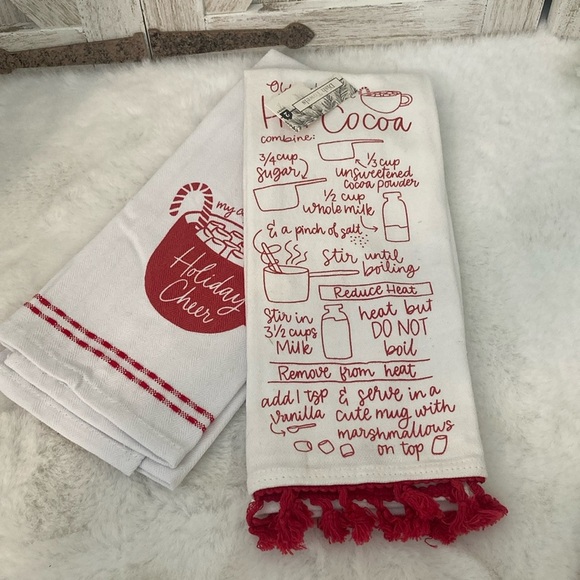 my
Holiday
Cheer
Cocoa
combine:
3/4 cup
Sugar
1/3 cup
unsweetened
cocoa powder
1/2 cup
whole milk
& a pinch of salt
Stir until
boiling
Reduce Heat
Stir in
3 1/2 cups
Milk
heat but
DO NOT
boil
Remove from heat
add 1 tsp
vanilla
& serve in a
cute mug with
marshmallows
on top